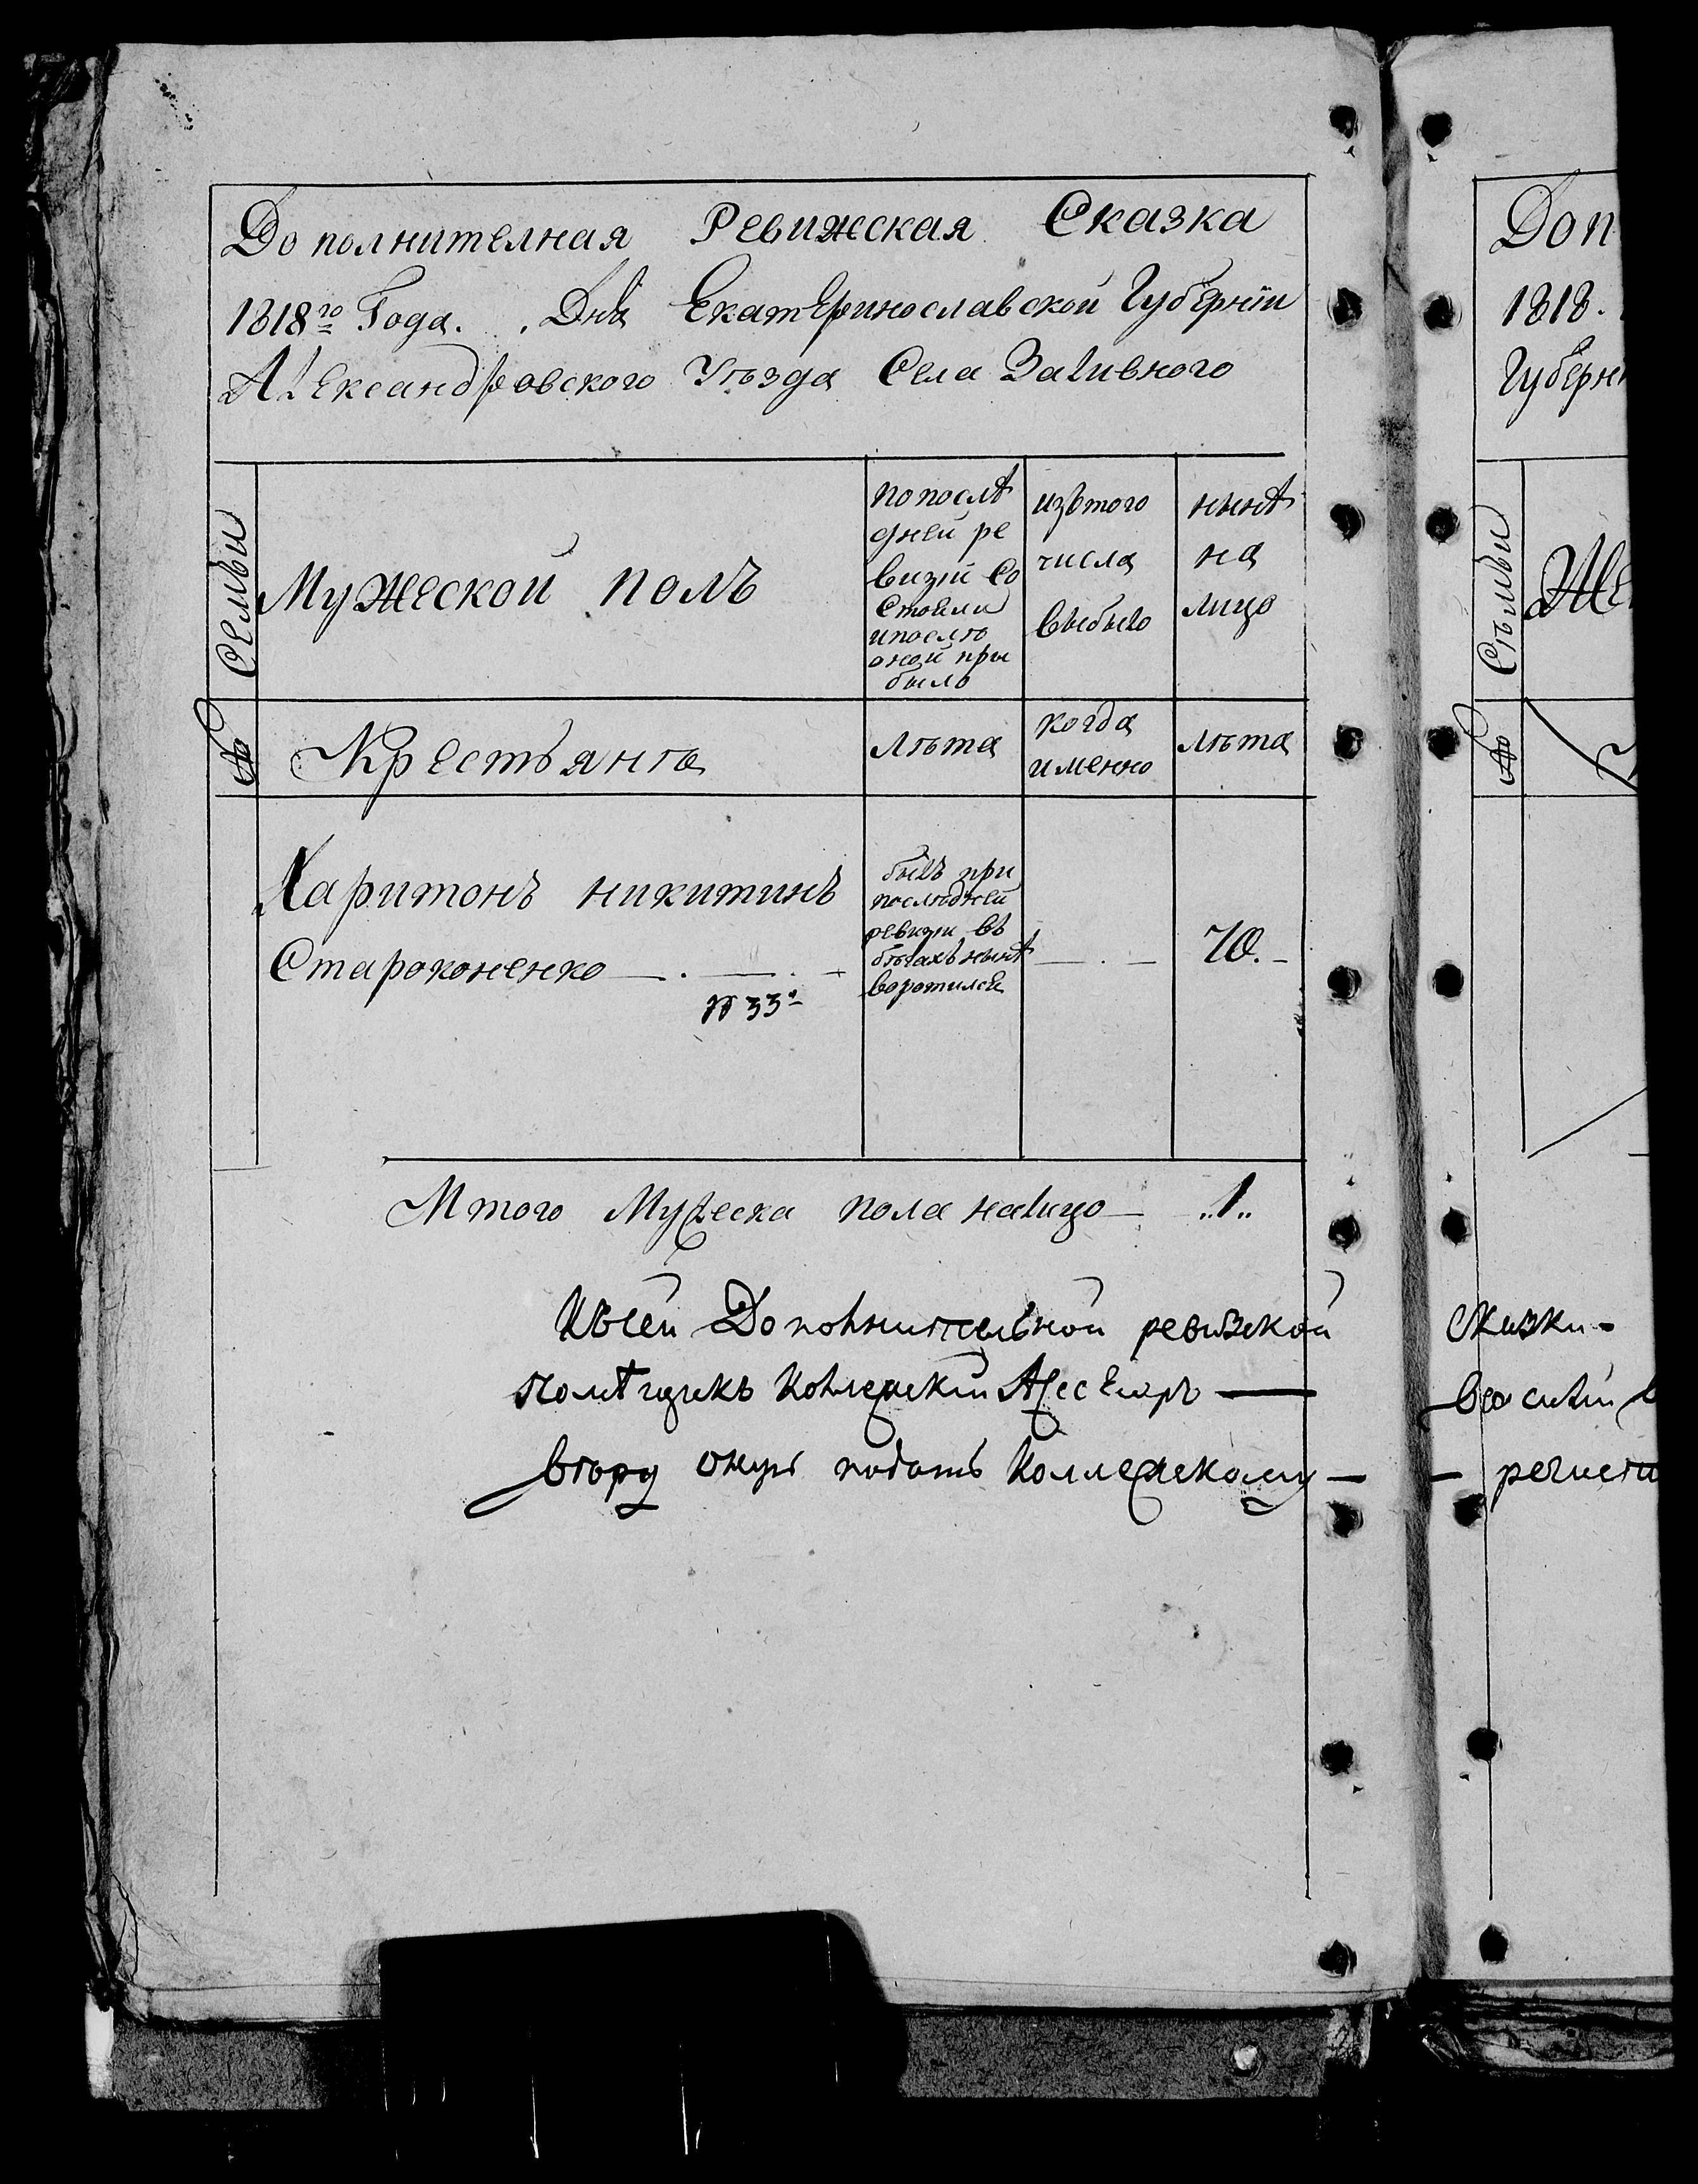 Дополнителная Ревижская Сказка
1818го Года. . Дня Екатеринославской Губерніи
Александровского Уѣзда Села Заливного
Семьи
Мужеской полъ
по послѣ
дней ре
визіи со
стояли
и послѣ
оной при
было
изъ того
числа
выбыло
нынѣ
на
лицо
№
Крестьянѣ
лѣта
когда
именно
лѣта
Харитонъ никитинъ
Староконенко
№ 33й
былъ при
последней
ревизіи въ
бѣгахъ нынѣ
воротился
70.
Итого Мужеска пола налицо ..1..
Къ сей Дополнительной ревизкой
помѣщикъ Колежскій Асесъ
оную подать Коллежскому
Доп
1818.
Губерн
Семьи
Же
№
сказки
василий
регист